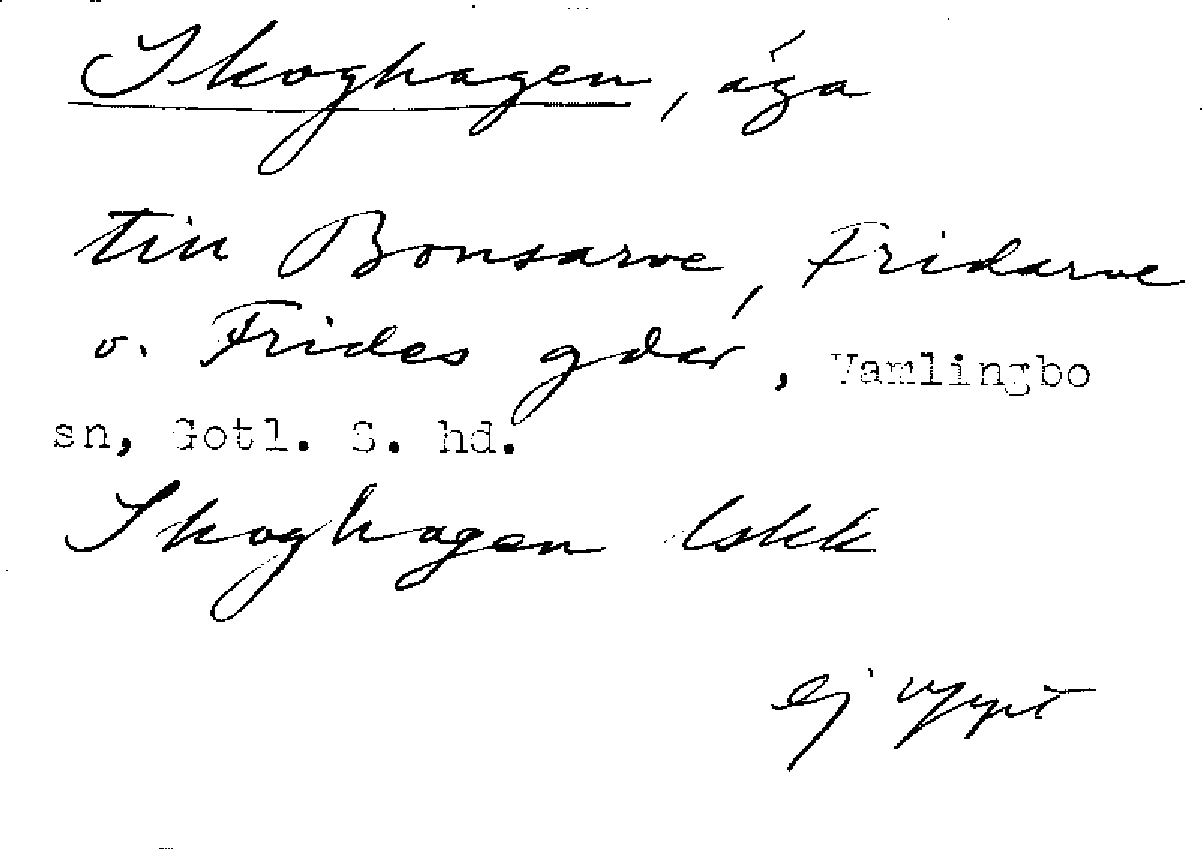 Skoghagen, äga
till Bonsarve, Fridarve
o. Frides gdar, Vamlingbo
sn, Gotl. S. hd.
Skoghagen lskk
ej uppt